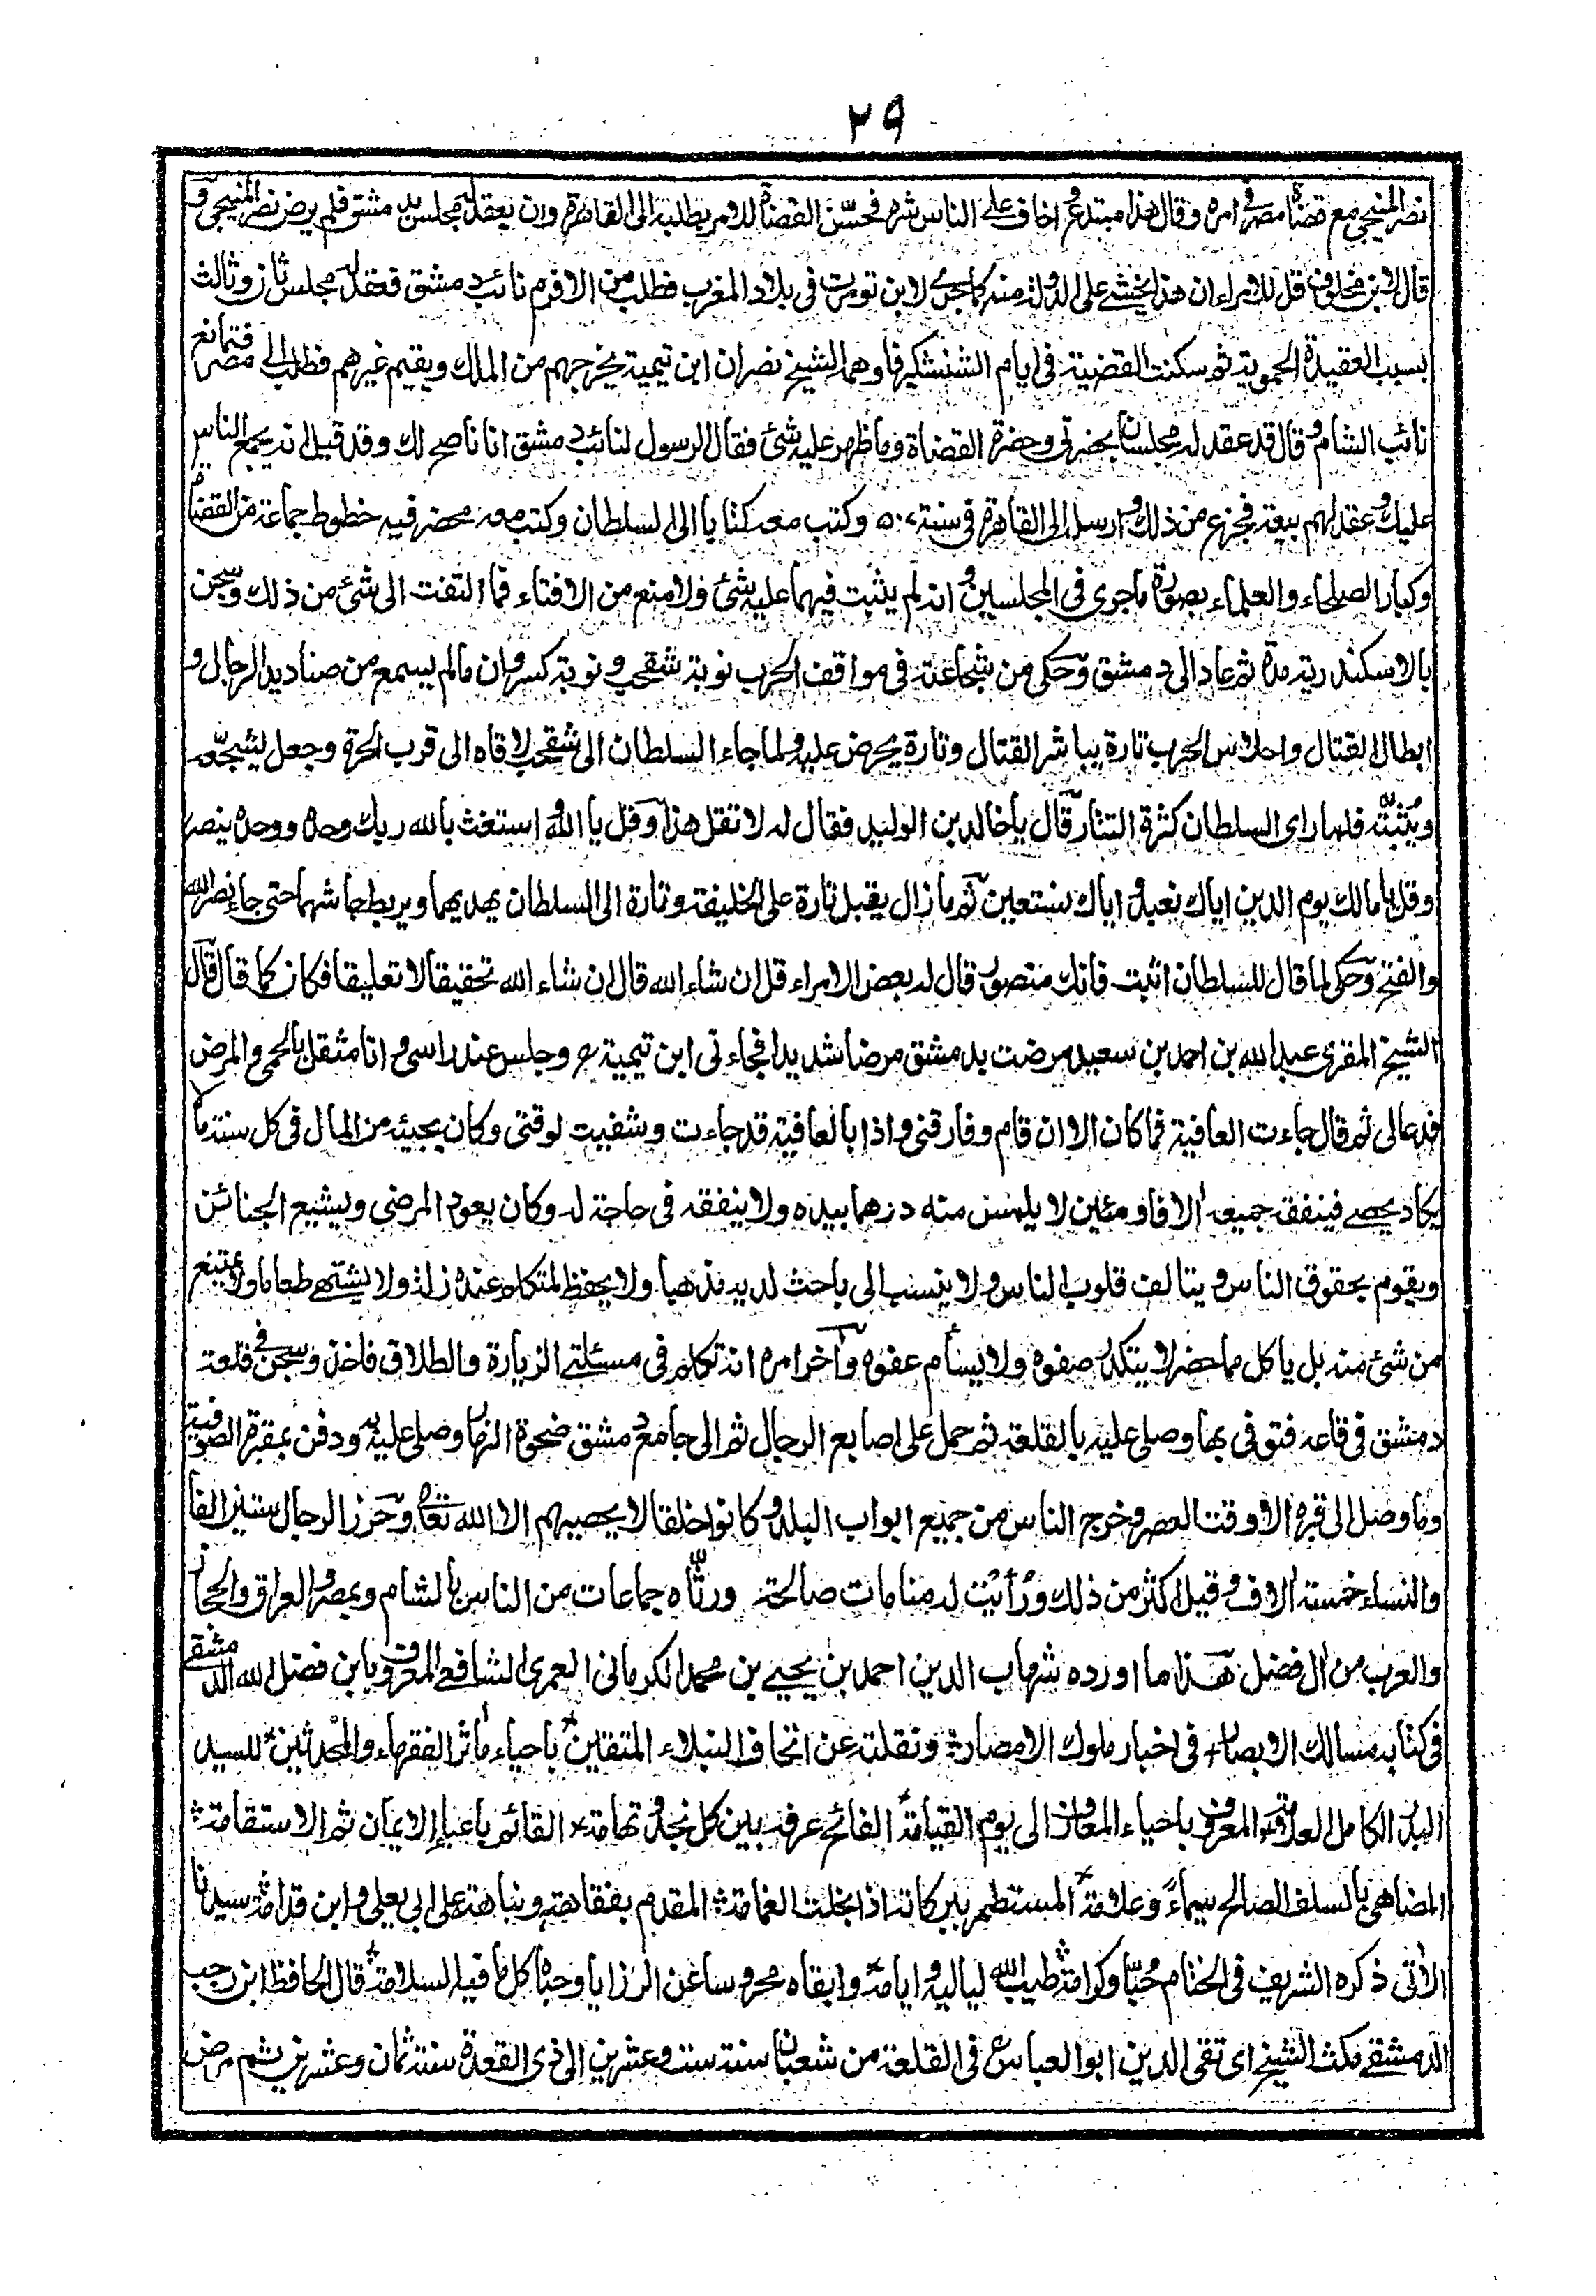 ٢٩
نصر المنبجي مع قضاة مصر في امره وقال هذا مبتدع واخاف على الناس شره فحسّن القضاة للامر يطلبه الى القاهرة وان يعقد له مجلس بدمشق فلم يرض نصر المنبجي و
قال لابن مخلوف قل للامراء ان هذا يخشى على الدولة منه كما جرى لابن تومرت في بلاد المغرب فطلب من الافرم نائب دمشق فعقد له مجلس ثان وثالث
بسبب العقيدة الحموية ثم سكنت القضية في ايام الشنشكير فاوهم الشيخ نصر ان ابن تيمية يخرجهم من الملك ويقيم غيرهم فطلب الى مصر فتمانع
نائب الشام وقال قد عقد له مجلسان بحضرتي وحضرة القضاة وما ظهر عليه شئ فقال الرسول لنائب دمشق انا ناصح لك وقد قيل انه يجمع الناس
عليك وعقد لهم بيعة فجزع من ذلك وارسل الى القاهرة في سنة ٥٠٧ وكتب معه كتابا الى السلطان وكتب معه محضر فيه خطوط جماعة من القضاة
وكبار الصلحاء والعلماء بصورة ما جرى في المجلسين وانه لم يثبت فيهما عليه شئ ولا منع من الافتاء فما التفت الى شئ من ذلك وسجن
بالاسكندرية مدة ثم عاد الى دمشق وحكى من شجاعته في مواقف الحرب نوبة شقحب ونوبة كسروان ما لم يسمع من صناديد الرجال و
ابطال القتال واحلاس الحرب تارة يباشر القتال وتارة يحرض عليه ولما جاء السلطان الى شقحب لاقاه الى قرب الحرة وجعل يشجّعه
ويُثبّته فلما راى السلطان كثرة التتار قال يا خالد بن الوليد فقال له لا تقل هذا وقل يا الله واستغث بالله ربك وحده ووحده ينصر
وقل يا مالك يوم الدين اياك نعبد واياك نستعين ثم ما زال يقبل تارة على الخليفة وتارة الى السلطان يهديهما ويربط جاشهما حتى جاء نصر الله
والفتح وحكى لما قال للسلطان اثبت فانك منصور قال له بعض الامراء قل ان شاء الله قال ان شاء الله تحقيقا لا تعليقا فكان كما قال قال
الشيخ المقرى عبد الله بن احمد بن سعيد مرضت بدمشق مرضا شديدا فجاءني ابن تيمية رح وجلس عند راسي وانا مثقل بالحمى والمرض
فدعا لي ثم قال جاءت العافية فما كان الا ان قام وفارقني واذا بالعافية قد جاءت وشفيت لوقتي وكان يجيئه من المال في كل سنة ما لا
يكاد يحصى فينفق جميعه الافا ومئين لا يلمس منه درهما بيده ولا ينفقه في حاجة له وكان يعود المرضى ويشيع الجنائز
ويقوم بحقوق الناس ويتالف قلوب الناس ولا ينسب الى باحث لديه مذهبا ولا يحفظ لمتكلم عنده زلة ولا يشتهي طعاما ولا يمتنع
من شئ منه بل ياكل مما حضر لا يتكدر صفوه ولا يسأم عفوه وآخر امره انه تكلم في مسئلتي الزيارة والطلاق فاخذ وسجن في قلعة
دمشق في قاعة فتوفي بها وصلي عليه بالقلعة ثم حمل على اصابع الرجال ثم الى جامع دمشق ضحوة النهار وصلي عليه ودفن بمقبرة الصوفية
وما وصل الى قبره الا وقت العصر وخرج الناس من جميع ابواب البلد وكانوا خلقا لا يحصيهم الا الله تعالى وحُزر الرجال ستين الفا
والنساء خمسة الاف وقيل اكثر من ذلك ورأيت له منامات صالحة ورثّاه جماعات من الناس بالشام وبمصر والعراق والحجاز
والعرب من ال فضل هذا ما اورده شهاب الدين احمد بن يحيى بن محمد الكرماني العمري الشافعي المعروف بابن فضل الله الدمشقي
في كتابه مسالك الابصار في اخبار ملوك الامصار ونقلته عن اتحاف النبلاء المتقين باحياء مآثر الفقهاء والمحدثين للسيد
البدر الكامل العلامة المعروف باحياء المعارف الى يوم القيامة الفائح عرفه بين كل نجد وتهامة القائم باعباء الايمان ثم الاستقامة
المضاهي بالسلف الصالح سيماء وعلامة المستظهر ببركاته اذا بخلت الغمامة المقدم بفقاهته ونباهته على ابي يعلى وابن قدامة سيدنا
الآتي ذكره الشريف في الختام حُبّا وكرامة طيب الله لياليه وايامه وابقاه محروسا عن الرزايا وحباه كل ما فيه السلامة قال الحافظ ابن رجب
الدمشقي مكث الشيخ اي تقي الدين ابو العباس رح في القلعة من شعبان سنة ست وعشرين الى ذي القعدة سنة ثمان وعشرين ثم مرض